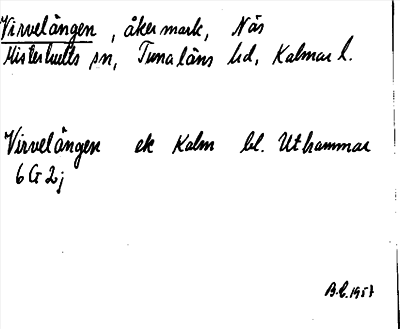 Virvelängen, åkermark, Näs
Misterhults sn, Tunaläns hd, Kalmar l.
Virvelängen ek Kalm bl. Uthammar
6 G 2 j
B.L. 1957